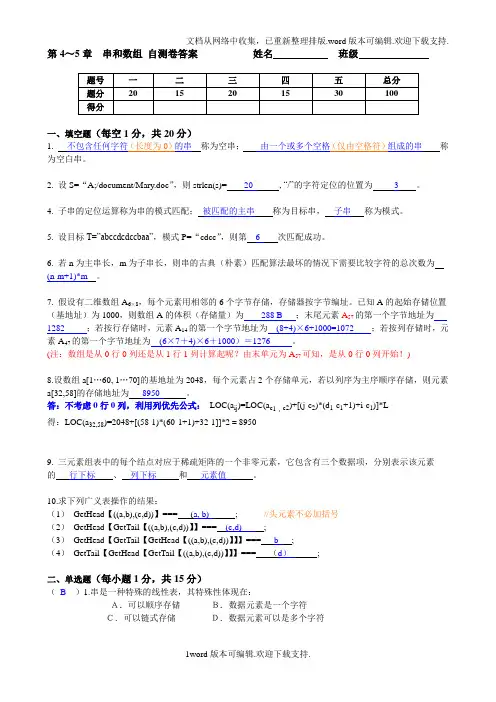 文档从网络中收集，已重新整理排版.word版本可编辑.欢迎下载支持.
第4～5章 串和数组 自测卷答案 姓名 班级
题号 一 二 三 四 五 总分
题分 20 15 20 15 30 100
得分
一、填空题（每空1分，共20分）
1. 不包含任何字符（长度为0）的串 称为空串； 由一个或多个空格（仅由空格符）组成的串 称
为空白串。
2. 设S=“A;/document/Mary.doc”，则strlen(s)= 20 , “/”的字符定位的位置为 3 。
4. 子串的定位运算称为串的模式匹配； 被匹配的主串 称为目标串， 子串 称为模式。
5. 设目标T=”abccdcdccbaa”，模式P=“cdcc”，则第 6 次匹配成功。
6. 若n为主串长，m为子串长，则串的古典（朴素）匹配算法最坏的情况下需要比较字符的总次数为
(n-m+1)*m 。
7. 假设有二维数组A6×8，每个元素用相邻的6个字节存储，存储器按字节编址。已知A的起始存储位置
（基地址）为1000，则数组A的体积（存储量）为 288 B ；末尾元素A57的第一个字节地址为
1282 ；若按行存储时，元素A14的第一个字节地址为 (8+4)×6+1000=1072 ；若按列存储时，元
素A47的第一个字节地址为 (6×7＋4)×6＋1000）＝1276 。
(注：数组是从0行0列还是从1行1列计算起呢？由末单元为A57可知，是从0行0列开始！)
8.设数组a[1…60, 1…70]的基地址为2048，每个元素占2个存储单元，若以列序为主序顺序存储，则元素
a[32,58]的存储地址为 8950 。
答：不考虑0行0列，利用列优先公式： LOC(aij)=LOC(ac1，c2)+[(j-c2)*(d1-c1+1)+i-c1)]*L
得：LOC(a32,58)=2048+[(58-1)*(60-1+1)+32-1]]*2＝8950
9. 三元素组表中的每个结点对应于稀疏矩阵的一个非零元素，它包含有三个数据项，分别表示该元素
的 行下标 、 列下标 和 元素值 。
10.求下列广义表操作的结果：
（1） GetHead【((a,b),(c,d))】=== (a, b) ; //头元素不必加括号
（2） GetHead【GetTail【((a,b),(c,d))】】=== (c,d) ;
（3） GetHead【GetTail【GetHead【((a,b),(c,d))】】】=== b ;
（4） GetTail【GetHead【GetTail【((a,b),(c,d))】】】=== （d） ;
二、单选题（每小题1分，共15分）
（ B ）1.串是一种特殊的线性表，其特殊性体现在：
A．可以顺序存储 B．数据元素是一个字符
C．可以链式存储 D．数据元素可以是多个字符
1word版本可编辑.欢迎下载支持.